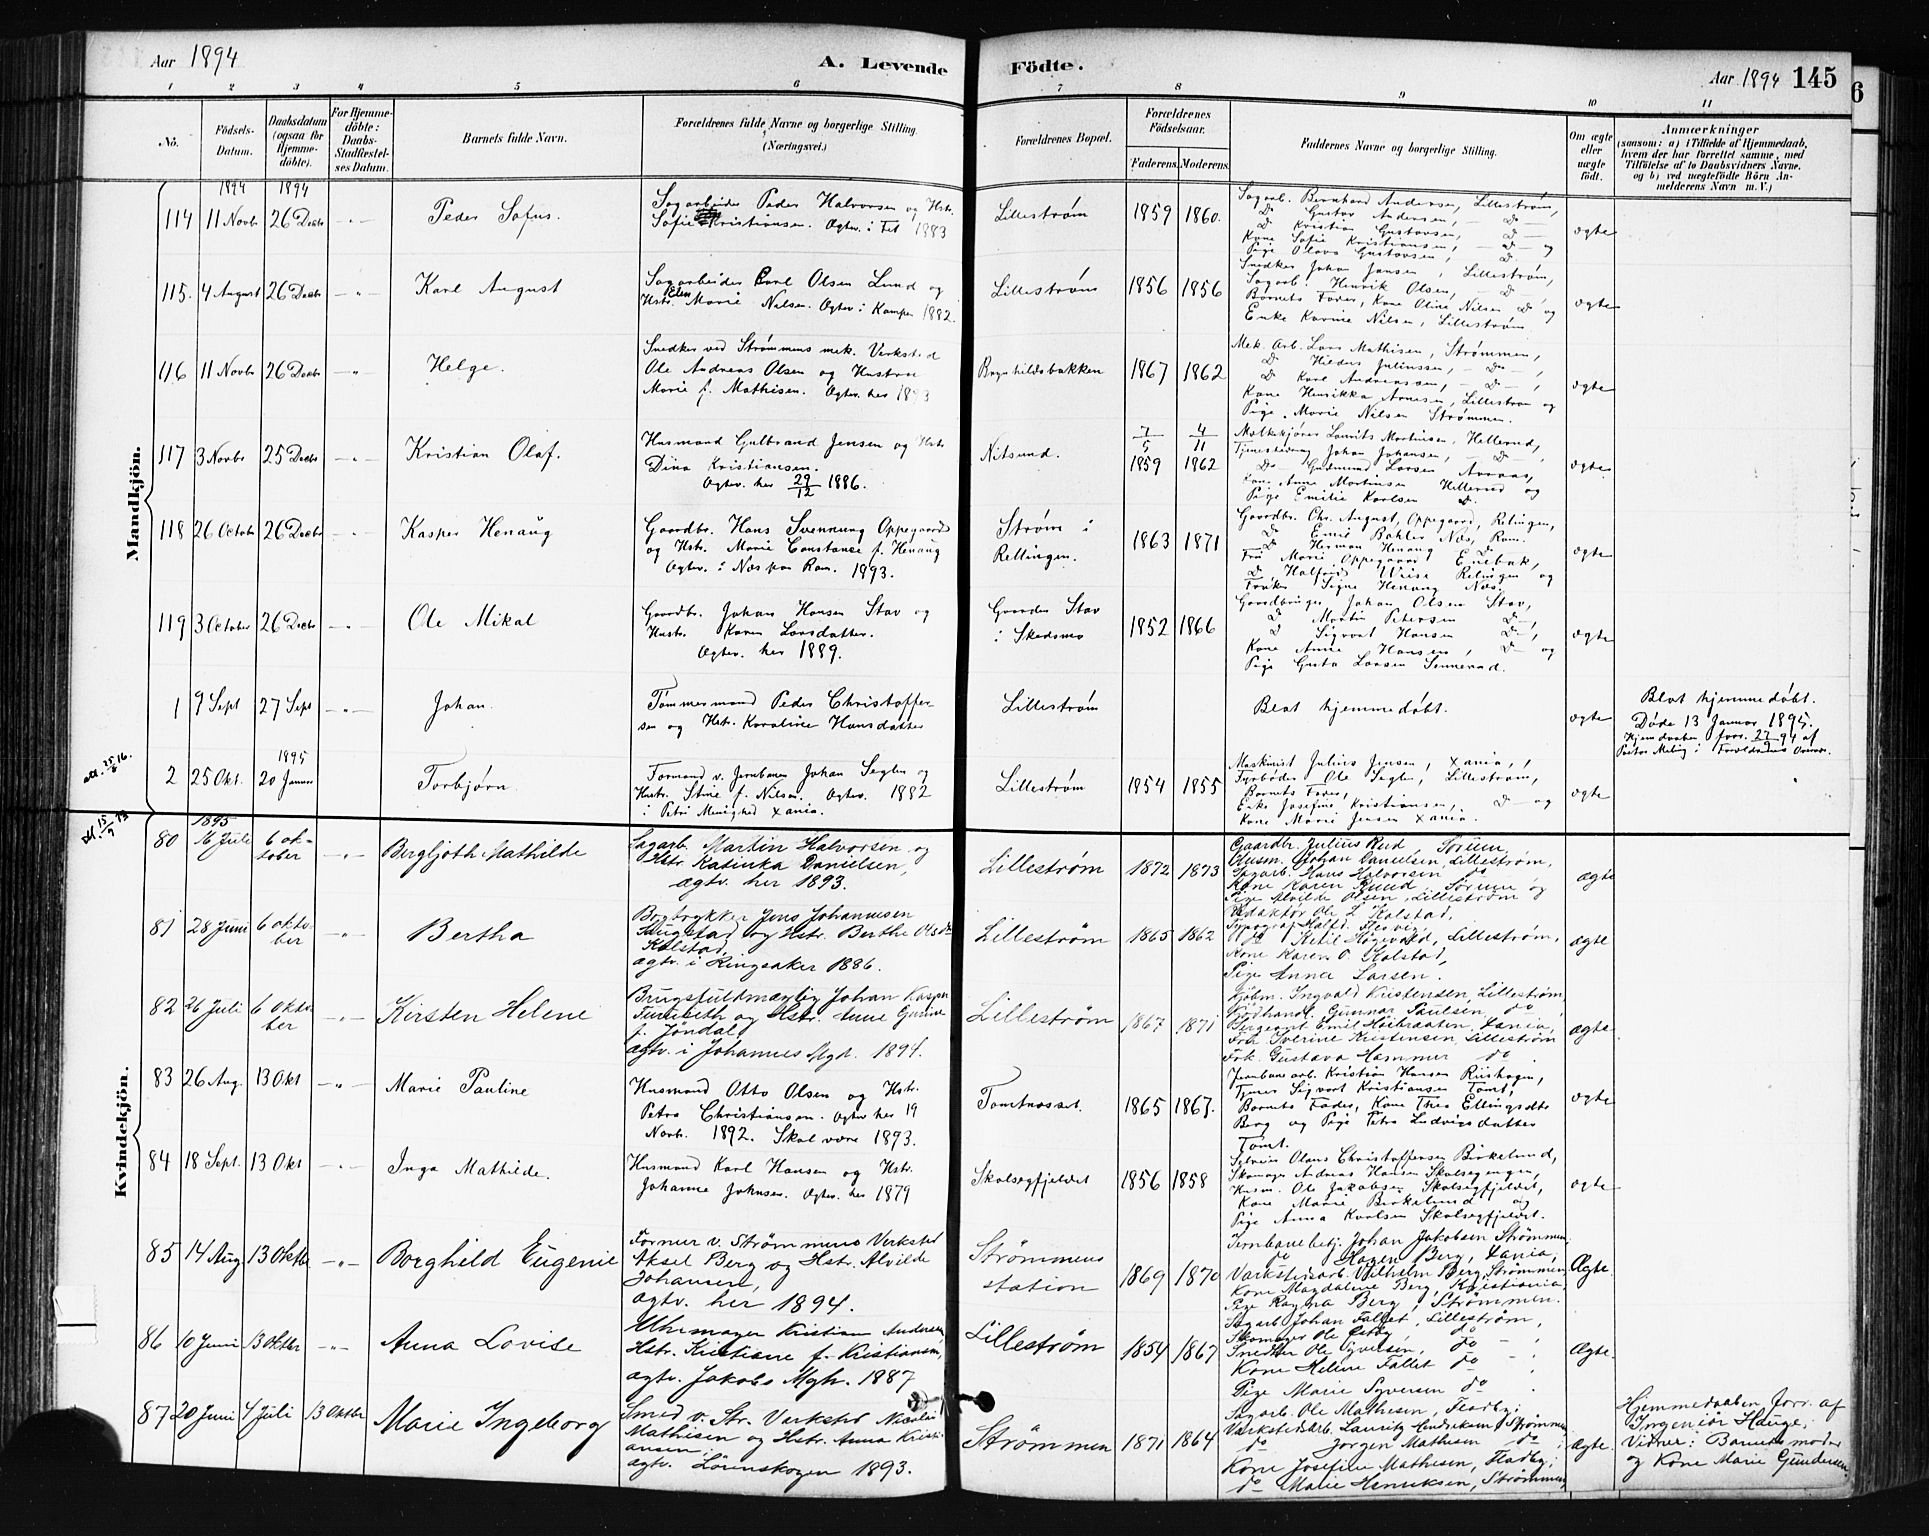 Aar 1894
A. Levende
Födte.
Aar 1894 145
6
1 2 3 4 5 6 7 8 9 10 11
No.
Födsels-
Datum.
Daabsdatum
(ogsaa for
Hjemme-
döbte).
For Hjemme-
döbte:
Daabs-
Stadfæstel-
ses Datum.
Barnets fulde Navn.
Forældrenes fulde Navne og borgerlige Stilling.
(Næringsvei.)
Forældrenes Bopæl.
Forældrenes
Födselsaar.
Faderens. Moderens.
Faddernes Navne og borgerlige Stilling.
Om ægte
eller
uægte
födt.
Anmærkninger
(saasom: a) i Tilfælde af Hjemmedaab,
hvem der har forrettet samme, med
Tilföielse af to Daabsvidners Navne.
og b) ved uægtefödte Börn An-
melderens Navn m. V.)
Mandkjön.
1894 1894
114 11 Novbr 26 Decbr
Peder Sofus.
Sagarbeider Peder Halvorsen og Hstr.
Sofie Kristiansen. Ægtev. i Fet 1883
Lillestrøm
1859 1860.
Sagarb. Bernhard Andersen, Lillestrøm,
Do Gustav Andersen, Do
Do Kristian Gustavsen, Do
Kone Sofie Kristiansen, Do og
Pige Olava Gustavsen, Do
ægte
115. 4 August 26 Decbr
Karl August
Sagarbeider Carl Olsen Lund og
Hstr. Marie Nilsen. Ægtev. i Kampen 1882.
Lillestrøm
1856 1856
Snedker Johan Jansen, Lillestrøm,
Sagarb. Henrik Olsen, Do
Barnets Fader, Kone Oline Nilsen Do og
Enke Karine Nilsen, Lillestrøm
ægte
116 11 Novbr 26 Decbr
Helge.
Snedker ved Strømmens mek. Verksted
Ole Andreas Olsen og Hustru
Marie f. Mathisen. Ægtev. her 1893
Bragnhildsbakken
1867 1862
Mek. Arb. Lars Mathisen, Strømmen,
Do Hildor Juliussen, Do,
Do Karl Andreassen, Do,
Kone Henrikka Arnesen, Lillestrøm og
Pige Marie Nilsen Strømmen.
ægte
117 3 Novbr 25 Decbr
Kristian Olaf.
Husmand Gulbrand Jensen og Hstr
Dina Kristiansen.
Ægtev. her 29/12 1886.
Nitsund.
7/5 1859 4/11 1862
Mælkekjører Laurits Martinsen, Hellerud,
Tjenestedreng Johan Johansen, Do,
Do Gudmund Larsen Aaraas,
Kone Anne Martinsen Hellerud og
Pige Emilie Karlsen Do
ægte
118 26 October 26 Decbr
Kasper Henaug
Gaardbr. Hans Svennung Oppegaard
og Hstr. Marie Constance f. Henaug
Ægtev. i Næs paa Rom. 1893.
Strøm i
Rellingen.
1863 1871
Gaardbr. Chr. August, Oppegaard, Relingen,
Do Emil Bahler Næs, Rom.
Do Herman Henaug Do
Fru Marie Oppegaard Enebak,
Do Halfrid Weise Relingen og
Frøken Signe Henaug Næs.
ægte
119 3 October 26 Decbr
Ole Mikal
Gaardbr. Johan Hansen Stav og
Hustr. Karen Larsdatter.
Ægtev. her 1889.
Gaarden Stav
i Skedsmo
1852 1866
Gaardbruger Johan Olsen Stav,
Do Martin Petersen Do,
Do Sigvart Hansen Do,
Kone Anne Hansen, Do og
Pige Gusta Larsen Sennerud.
ægte
1 9 Sept 27 Sept
Johan.
Tømmermand Peder Christoffer-
sen og Hstr. Karoline Hansdatter
Lillestrøm
Blot hjemmedøbt.
ægte
Blot hjemmedøbt.
Døde 13 Januar 1895.
Hjemdaaben forr. 27/9 94 af
att. 25/6 16.
1895
2 25 Okt. 20 Januar
Torbjørn.
Formand v. Jernbanen Johan Seglen og
Hustr. Stine f. Nilsen. Ægtev. 1882
i Petri Menighed Xania.
Lillestrøm
1854 1855
Maskinist Julius Jensen, Xania,
Fyrbøder Ole Seglen, Lillestrøm,
Barnets Fader,
Enke Josefine Kristiansen, Do og
Kone Marie Jensen Xania.
ægte
Kvindekjön.
1895
80 16 Juli 6 ok-
tober
Bergljoth Mathilde
Sagarb. Martin Halvorsen og
Hstr Katinka Danielsen,
ægtv. her 1893.
Lillestrøm
1872 1873
Gaardbr. Julius Rud, Sørum,
Husm. Johan Danielsen, Lillestrøm,
Sagarb. Hans Halvorsen do
Kone Karen Ruud, Sørum og
Pige Alvilde Olsen, Lillestrøm
ægte
81 28 Juni 6 okto-
ber
Bertha
Bogtrykker Jens Johannesen
Haugstad og Hstr. Berthe Olsdr
Kolstad,
ægtv. i Ringsaker 1886.
Lillestrøm
1865 1862
Redaktør Ole L Kolstad,
do Ketil Høgevold, Lillestrøm,
Kone Karen O. Kolstad,
Pige Anna Larsen.
ægte
82 26 Juli 6 okto-
ber
Kirsten Helene
Brugsfuldmægtig Johan Kasper
f. Jøndal,
ægtv. i Johannes Mgh. 1894.
Lillestrøm
1867 1871
Kjøbm. Ingvald Kristensen, Lillestrøm,
Kjødhandl. Gunnar Paulsen do,
Sergeant Emil Høibraaten, Xania,
Frk. Iverine Kristensen, Lillestrøm
Frk. Gustava Hammer do
ægte
83 26 Aug. 13 Okt
Marie Pauline
Husmand Otto Olsen og Hstr.
Petra Christiansen. Ægtev her 19
Novb. 1892. Skal være 1893.
Tomtnæsset.
1865 1867.
Jernbanearb. Kristian Hansen Riishagen,
Tjener Sigvart Kristiansen Tomt,
Barnets Fader, Kone Thea Ellingsdtr
Berg og Pige Petra Ludvigsdatter
Tomt.
ægte
84 18 Sept. 13 Okt
Inga Mathilde.
Husmand Karl Hansen og Hstr.
Johanne Johnsen. Ægtev. her 1879
Skalsegfjeldet
1856 1858
Selveier Olaus Christoffersen Birkelund,
Skomager Andreas Hansen Skalsegengen,
Husm. Ole Jakobsen Skalsegfjeldet,
Kone Marie Birkelund og
Pige Anna Karlsen Skalsegfjeldet.
ægte
85 14 Aug 13 Oktbr
Borghild Eugenie
Former v. Strømmens Verksted
Aksel Berg og Hstr. Alvilde
Johansen,
ægtv. her 1894.
Strømmens
station
1869 1870
Jernbanebetj. Johan Jakobsen Strømmen
do Hagen Berg, Xania,
Verkstedsarb. Vilhelm Berg Strømmen,
Kone Magdalene Berg, Kristiania,
Pige Ragna Berg, Strømmen.
Ægte.
86 10 Juni 13 Oktbr
Anna Lovise
Uhrmager Kristian Andersen,
Hstr. Kristiane f. Kristiansen,
ægtv. Jakobs Mgh. 1887
Lillestrøm
1854 1867
Sagarb Johan Fallet, Lillestrøm,
Skomager Ole Østby, do
Snedker Ole Syversen, do
Kone Helene Fallet do
Pige Marie Syversen do
Ægte.
87 20 Juni 4 Juli 13 Oktbr
Marie Ingeborg
Smed v. Str. Verksted Nicolai
Mathisen og Hstr. Anna Kristi-
ansen,
ægtv. Lørenskogen 1893.
Strømmen
1871 1864
Sagarb. Ole Mathesen, Fladby;
Verkstedsarb. Lauritz Hendriksen, Strømmen
do Jørgen Mathesen do;
Kone Josefine Mathesen, Fladby;
do Marie Henriksen, Strømmen,
Ægte.
Hjemmedaaben forr. af
Ingeniør Hauge;
Vidner: Barnets moder
og Kone Marie Gundersen.